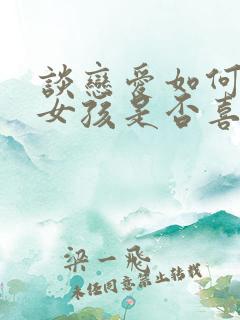 談戀愛如何
女孩是否喜
梁一飛
未任同意禁止转载